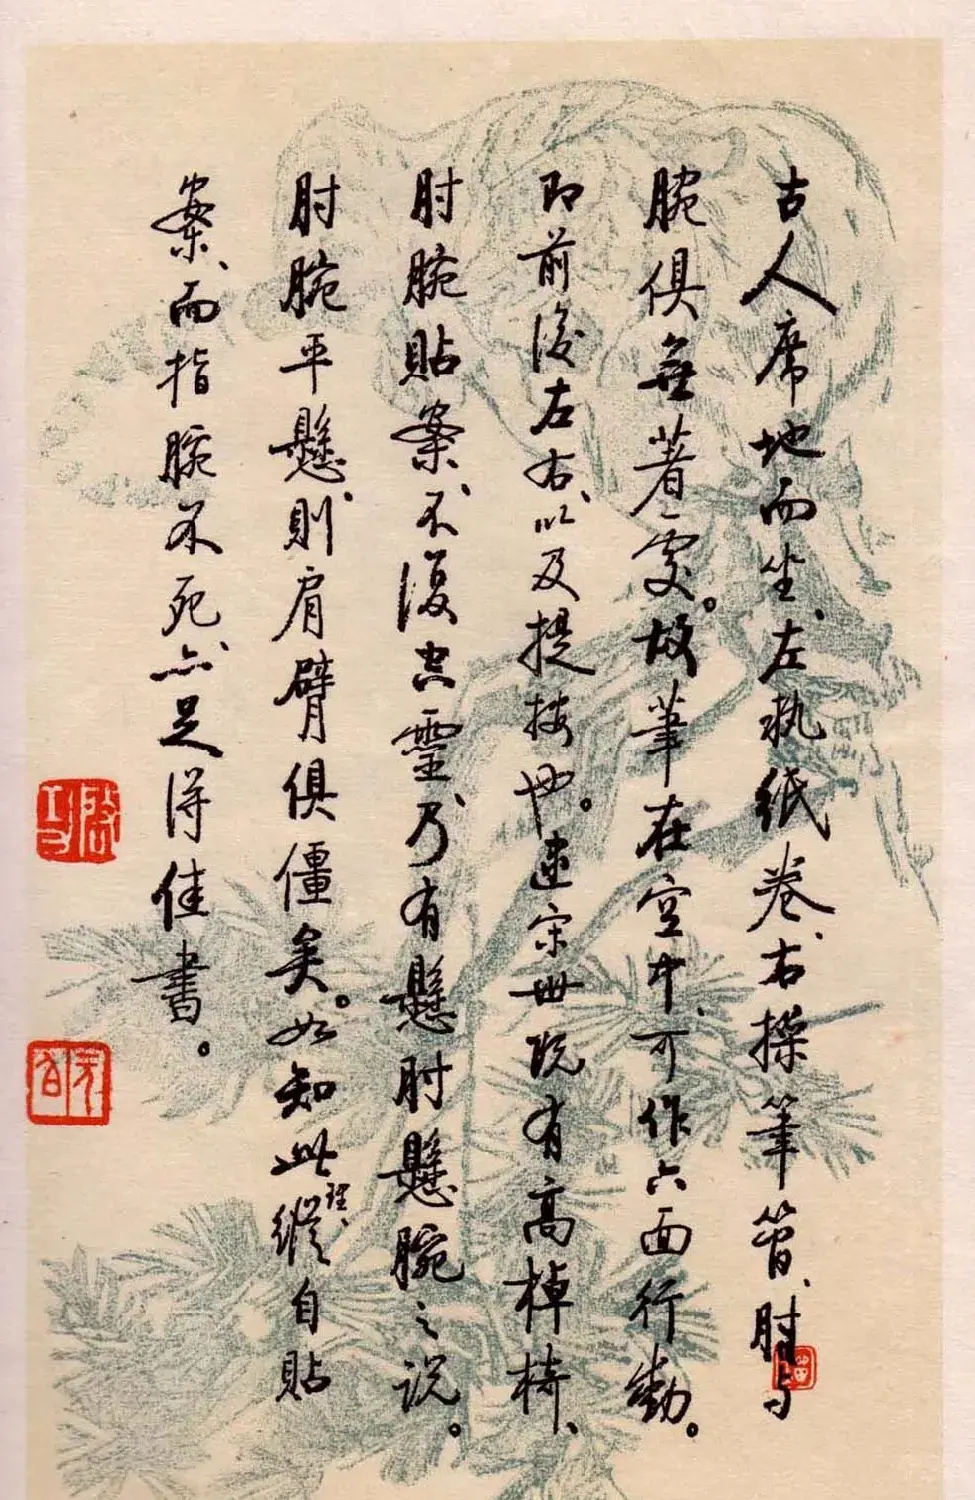 古人席地而坐、左執紙卷、右操筆管、肘与
腕俱無著處。故筆在空中、可作六面行動。
即前後左右、以及提按也。逮宋世既有高棹椅、
肘腕貼案、不復空靈、乃有懸肘懸腕之説。
肘腕平懸、則肩臂俱僵矣。如知此理、縱自貼
案、而指腕不死、亦足得佳書。
啟功
元白